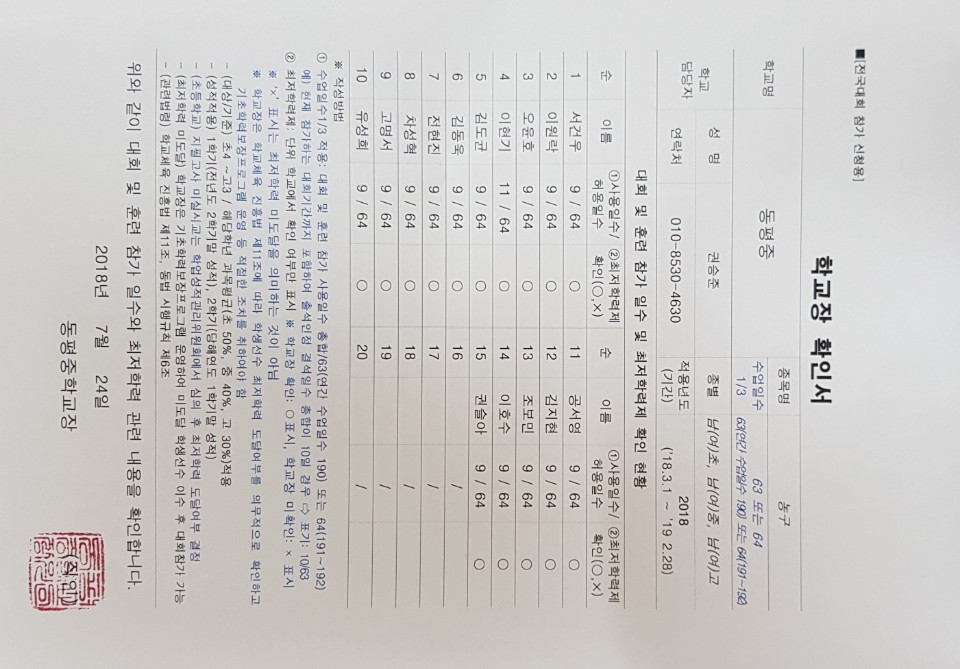 ■[전국대회 참가 신청용]
학교장 확인서
학교명 동평중 종목명 농구
학교 담당자 성 명 권승준 수업일수 1/3 63 또는 64
63(연간 수업일수 190) 또는 64(191~192)
종별 남(여)초, 남(여)중, 남(여)고
연락처 010-8530-4630 적용년도 (기간) 2018 ('18.3.1 ~ '19 2.28)
대회 및 훈련 참가 일수 및 최저학력제 확인 현황
순 이름 ①사용일수/ 허용일수 ②최저학력제 확인(○,×) 순 이름 ①사용일수/ 허용일수 ②최저학력제 확인(○,×)
1 서건우 9 / 64 ○ 11 공서영 9 / 64 ○
2 이원락 9 / 64 ○ 12 김지현 9 / 64 ○
3 오윤호 9 / 64 ○ 13 조보민 9 / 64 ○
4 이현기 11 / 64 ○ 14 이호수 9 / 64 ○
5 김도균 9 / 64 ○ 15 권슬아 9 / 64 ○
6 김동욱 9 / 64 ○ 16 /
7 전현진 9 / 64 ○ 17 /
8 차성혁 9 / 64 ○ 18 /
9 고명서 9 / 64 ○ 19 /
10 유성희 9 / 64 ○ 20 /
※ 작성방법
① 수업일수1/3 적용: 대회 및 훈련 참가 사용일수 총합/63(연간 수업일수 190) 또는 64(191~192)
예) 현재 참가하는 대회기간까지 포함하여 출석인정 결석일수 총합이 10일 경우 ⇨ 표기: 10/63
② 최저학력제: 단위 학교에서 확인 여부만 표시 ※ 학교장 확인: ○표시, 학교장 미확인: × 표시
※ '×' 표시는 최저학력 미도달을 의미하는 것이 아님
※ 학교장은 학교체육 진흥법 제11조에 따라 학생선수 최저학력 도달여부를 의무적으로 확인하고
기초학력보장프로그램 운영 등 적절한 조치를 취하여야 함
- (대상/기준) 초4 ~고3 / 해당학년 과목평균(초 50%, 중 40%, 고 30%)적용
- (성적적용) 1학기(전년도 2학기말 성적), 2학기(당해연도 1학기말 성적)
- (초등학교) 지필고사 미실시교는 학업성적관리위원회에서 심의 후 최저학력 도달여부 결정
- (최저학력 미도달) 학교장은 기초학력보장프로그램 운영하여 미도달 학생선수 이수 후 대회참가 가능
- (관련법령) 학교체육 진흥법 제11조, 동법 시행규칙 제6조
위와 같이 대회 및 훈련 참가 일수와 최저학력 관련 내용을 확인합니다.
2018년 7월 24일
동평중학교장 (직인)